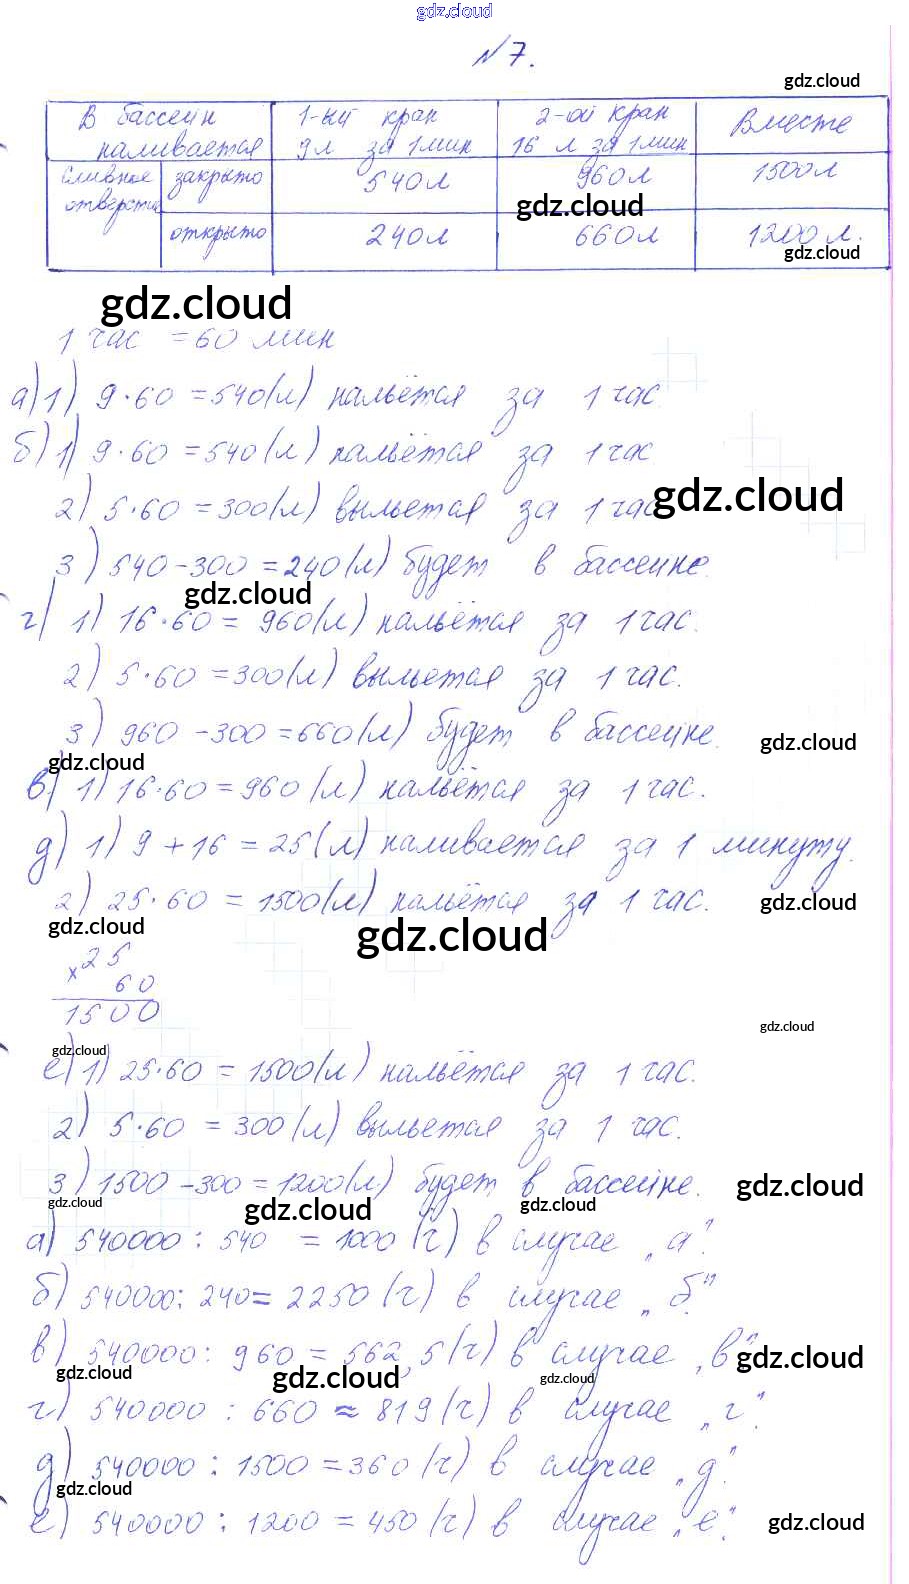 gdz.cloud
№7.
gdz.cloud
В бассейн наливается | 1-ый кран 9л за 1мин | 2-ой кран 16 л за 1мин | Вместе
сливное отверстие закрыто | 540л | 960л | 1500л
gdz.cloud
открыто | 240л | 660л | 1200л.
gdz.cloud
gdz.cloud
1 час = 60 мин
а) 1) 9·60 = 540(л) нальётся за 1 час.
б) 1) 9·60 = 540(л) нальётся за 1 час
2) 5·60 = 300(л) выльется за 1 час
gdz.cloud
3) 540-300 = 240(л) будет в бассейне.
gdz.cloud
г) 1) 16·60 = 960(л) нальётся за 1 час.
2) 5·60 = 300(л) выльется за 1 час.
3) 960-300 = 660(л) будет в бассейне.
gdz.cloud
gdz.cloud
в) 1) 16·60 = 960(л) нальётся за 1 час.
д) 1) 9+16 = 25(л) наливается за 1 минуту.
2) 25·60 = 1500(л) нальётся за 1 час.
gdz.cloud
gdz.cloud
gdz.cloud
× 25
60
1500
gdz.cloud
gdz.cloud
е) 1) 25·60 = 1500(л) нальётся за 1 час.
2) 5·60 = 300(л) выльется за 1 час.
3) 1500-300 = 1200(л) будет в бассейне.
gdz.cloud
gdz.cloud
gdz.cloud
gdz.cloud
а) 540000 : 540 = 1000 (ч) в случае „а".
б) 540000 : 240 = 2250 (ч) в случае „б"
в) 540000 : 960 = 562,5 (ч) в случае „в"
gdz.cloud
gdz.cloud
gdz.cloud
gdz.cloud
г) 540000 : 660 ≈ 819 (ч) в случае „г".
д) 540000 : 1500 = 360 (ч) в случае „д".
gdz.cloud
е) 540000 : 1200 = 450 (ч) в случае „е".
gdz.cloud